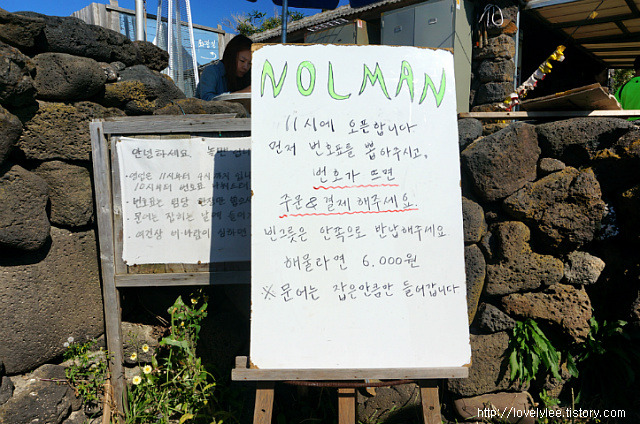 NOLMAN
11시에 오픈합니다
먼저 번호표를 뽑아주시고,
번호가 뜨면
주문&결제 해주세요.
빈그릇은 안쪽으로 반납해주세요
해물라면 6.000원
※ 문어는 잡은만큼만 들어갑니다
안녕하세요. 놀만 입니
11시부터
10시부터 번호표
http://lovelylee.tistory.com